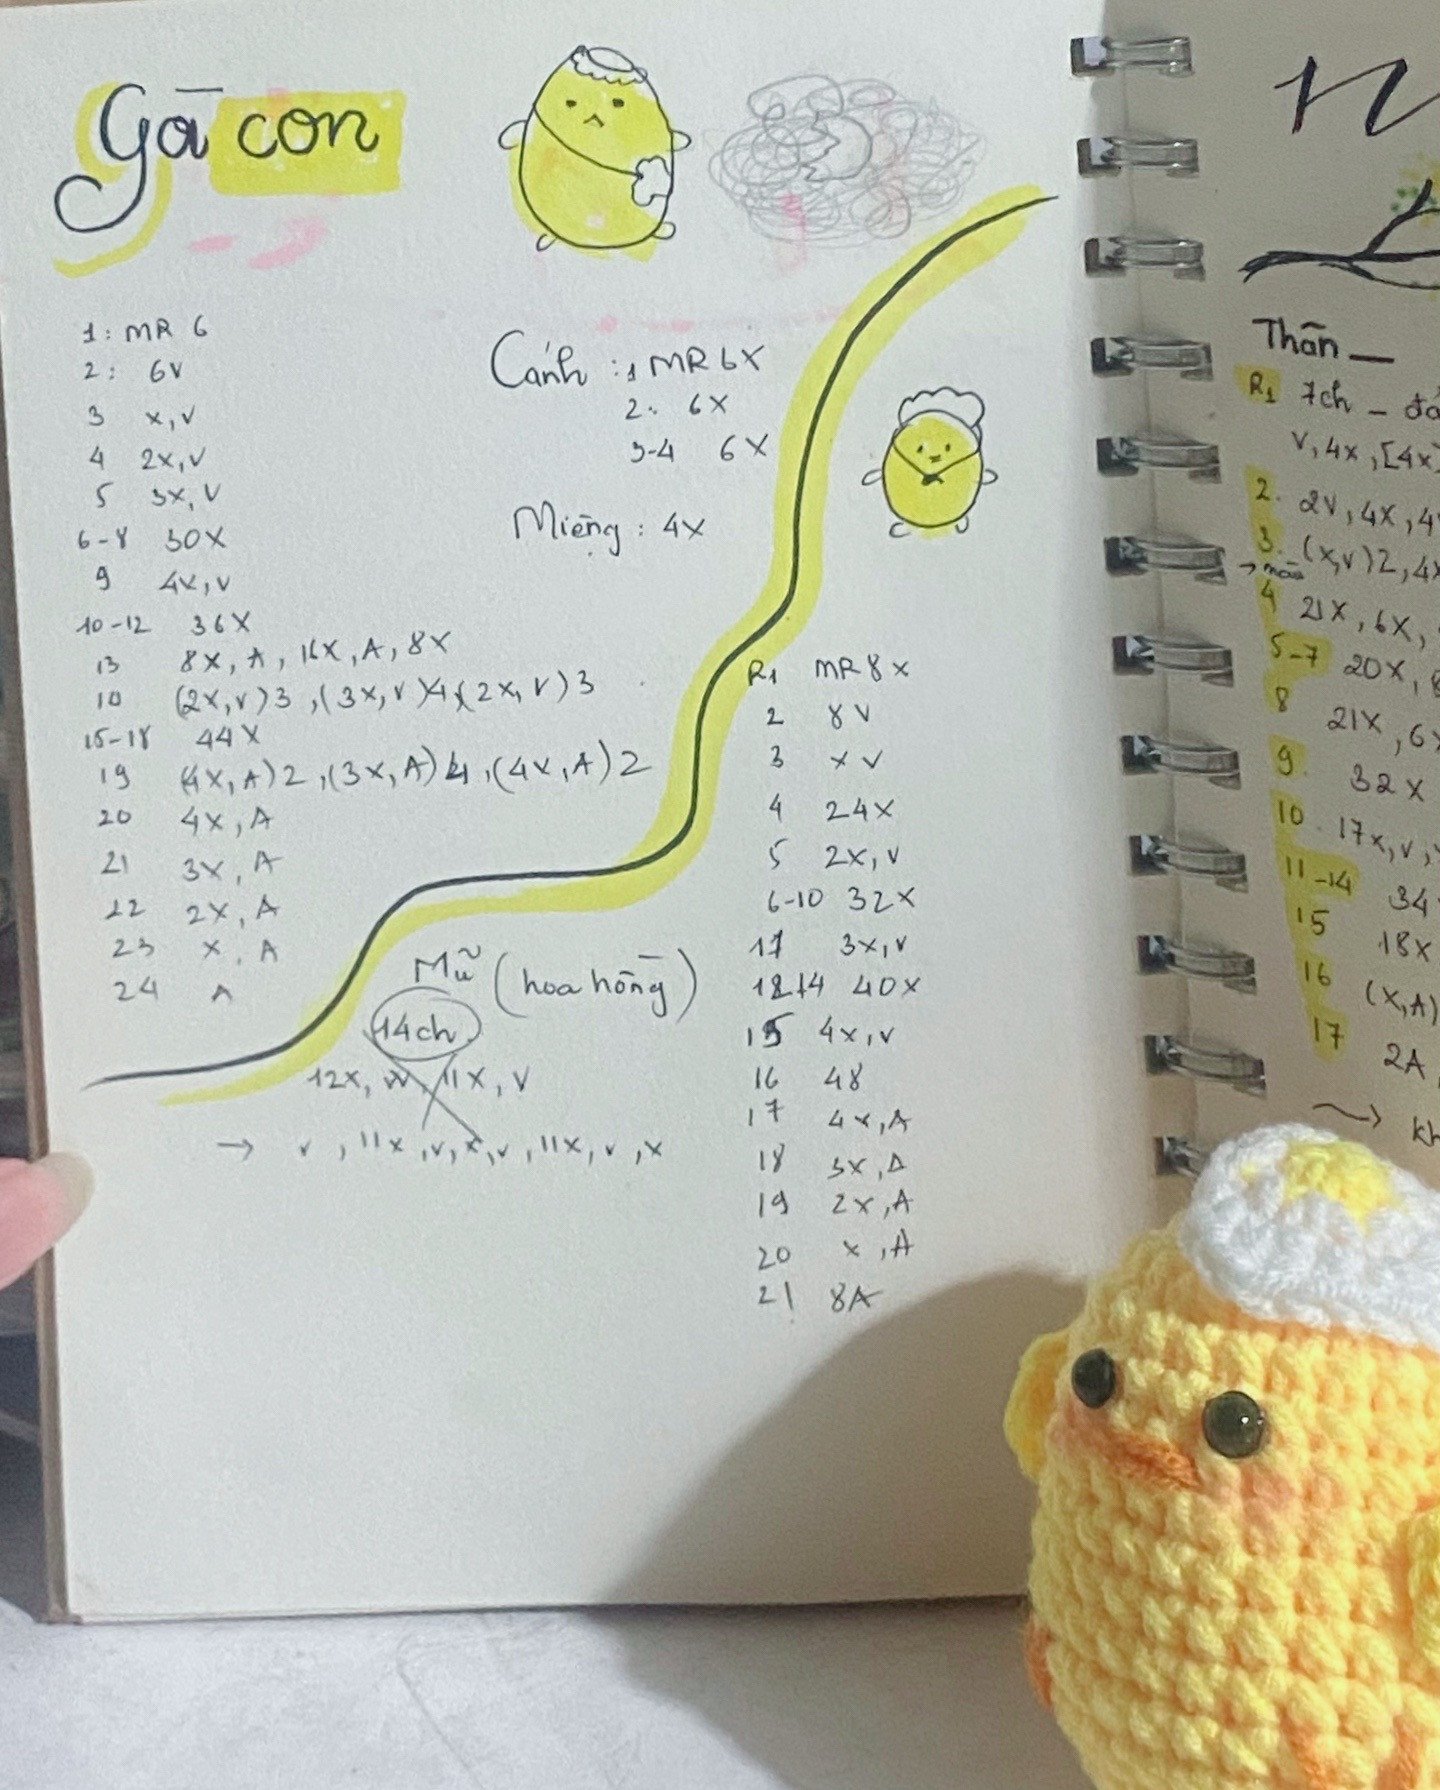 Gà con
1: MR 6
2: 6V
3 x, v
4 2x, v
5 3x, v
6-8 30x
9 4x, v
10-12 36x
13 8x, A, 16x, A, 8x
10 (2x, v)3, (3x, v)4, (2x, v)3
15-18 44x
19 (4x, A)2, (3x, A)4, (4x, A)2
20 4x, A
21 3x, A
22 2x, A
23 x, A
24 A
Cánh : 1 MR 6X
2: 6X
3-4 6X
Miệng : 4x
Mũ (hoa hồng)
14ch
12x, w, 11x, v
→ v, 11x, v, x, v, 11x, v, x
R1 MR 8x
2 8v
3 x v
4 24x
5 2x, v
6-10 32x
11 3x, v
12-14 40x
15 4x, v
16 48
17 4x, A
18 3x, A
19 2x, A
20 x, A
21 8A
Thân —
R1 7ch -
v, 4x, [4x]
2. 2V, 4x,
3. (x,v)2, 4x
→ màu
4 21x, 6x,
5-7 20x,
8 21x, 6x
9. 32x
10. 17x, v,
11-14 34
15 18x
16 (x, A)
17 2A,
→